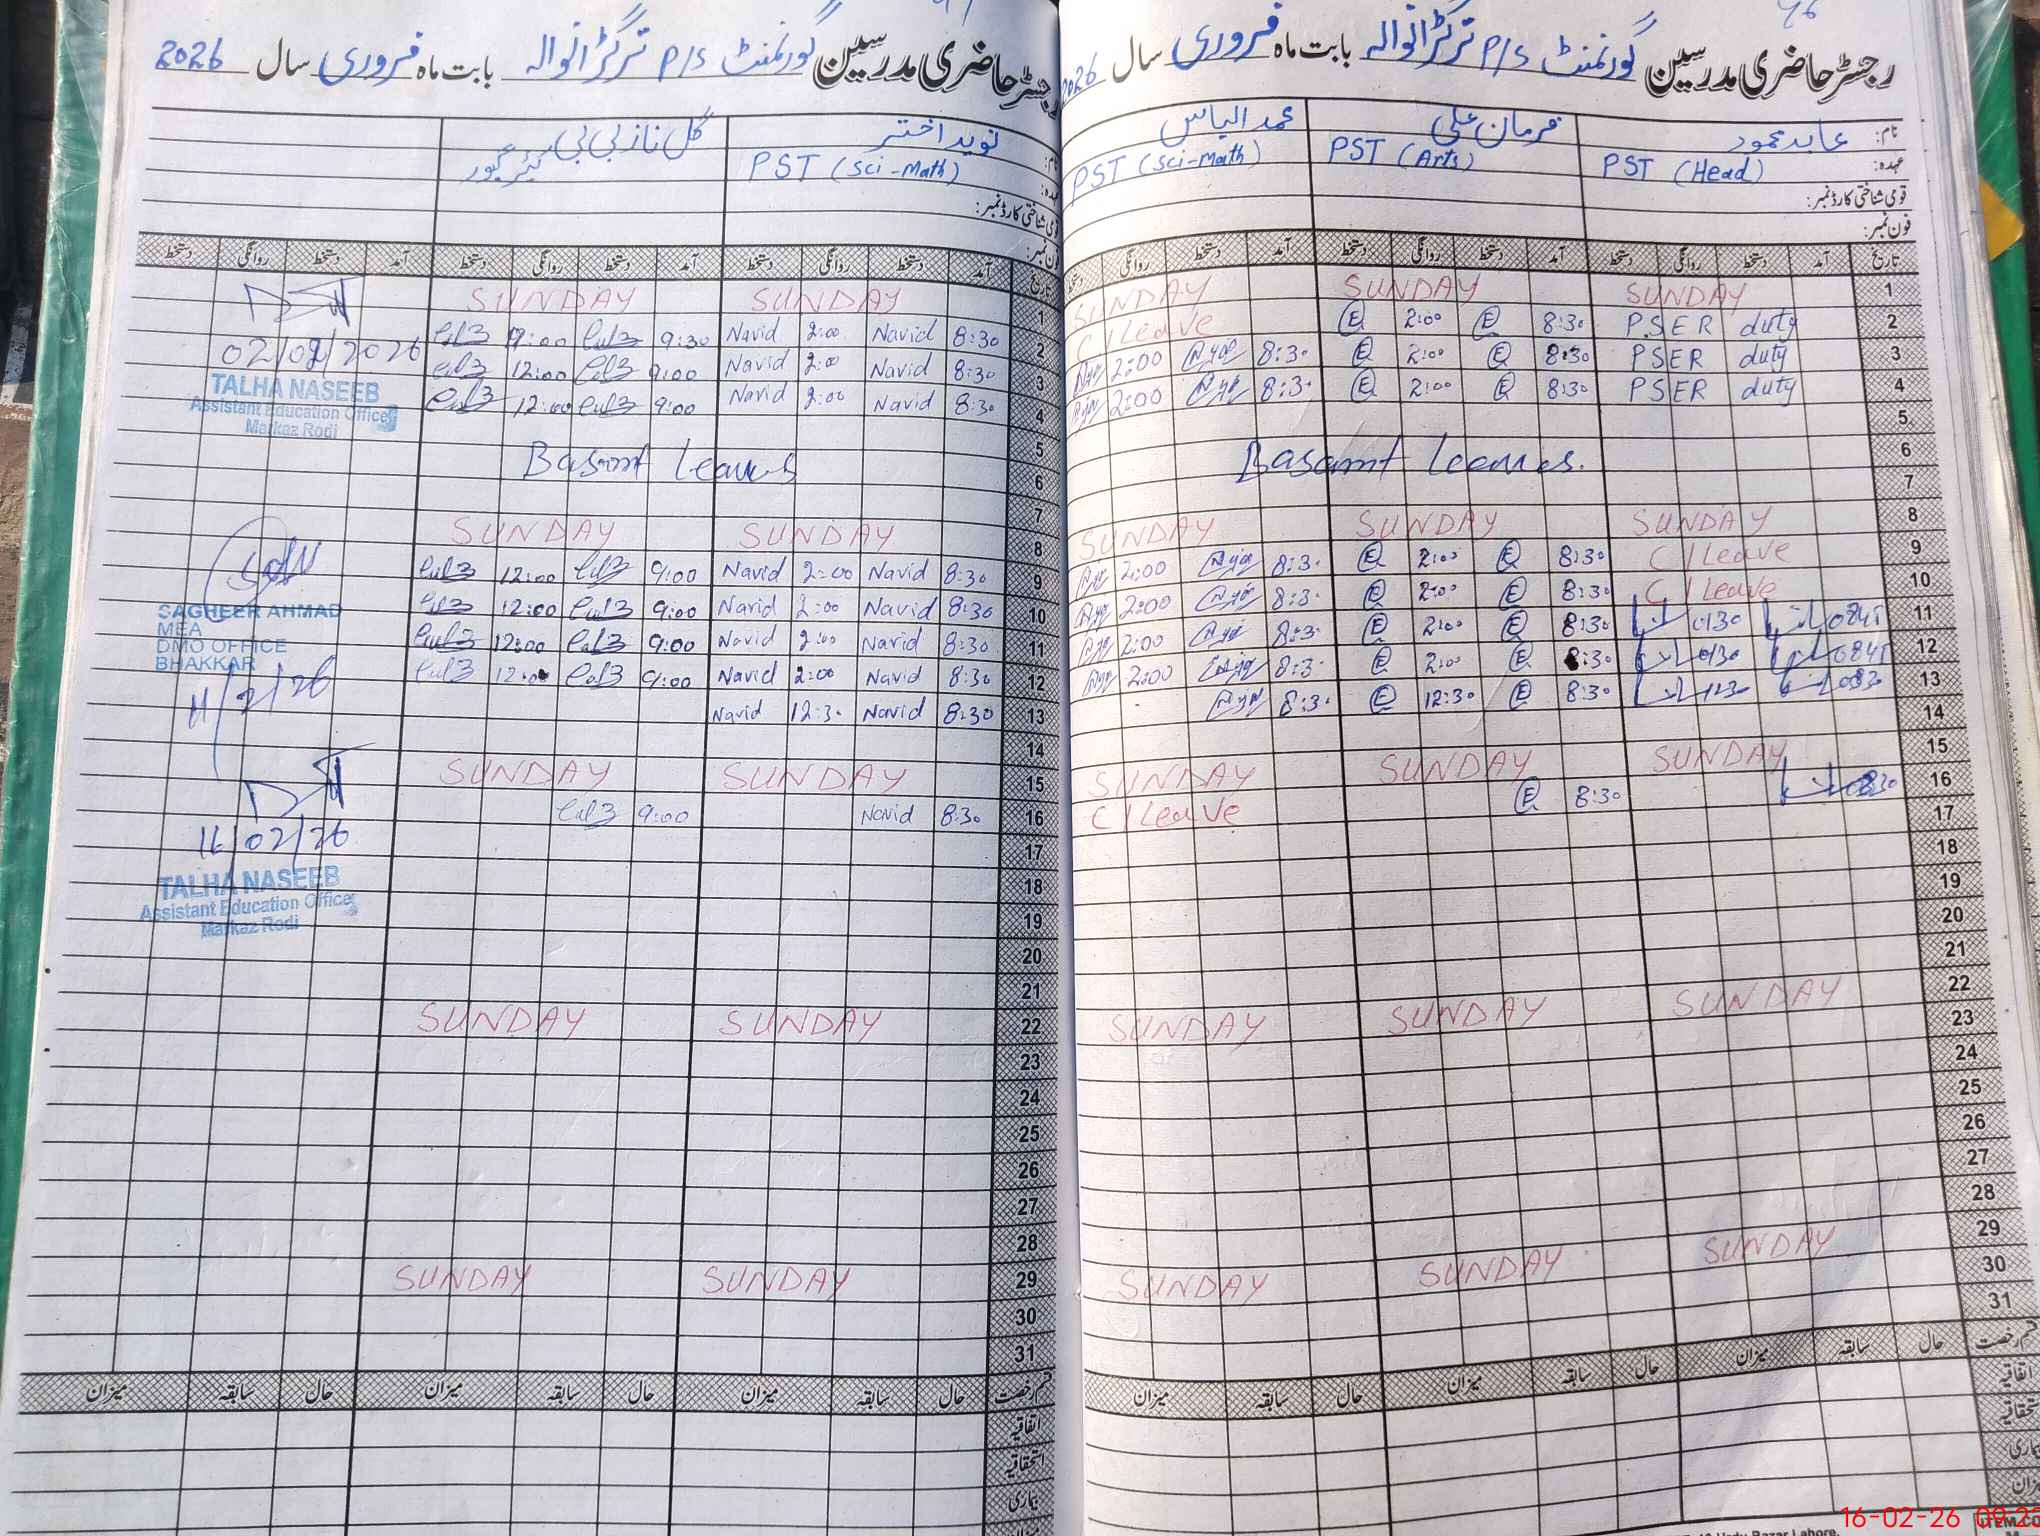 رجسٹر حاضری مدرسین گورنمنٹ P/S ترگڑانوالہ بابت ماہ فروری سال 2026
نام: عابد محمود فرمان علی محمد الیاس
عہدہ: PST (Head) PST (Arts) PST (Sci-Math)
قومی شناختی کارڈ نمبر:
فون نمبر:
تاریخ آمد دستخط روانگی دستخط آمد دستخط روانگی دستخط آمد دستخط روانگی
1 SUNDAY SUNDAY SUNDAY
2 PSER duty 8:30 E 2:00 E C/Leave
3 PSER duty 8:30 E 2:00 E 8:3. 2:00
4 PSER duty 8:30 E 2:00 E 8:3. 2:00
5
6 Basant leaves.
7
8 SUNDAY SUNDAY SUNDAY
9 C/Leave 8:30 E 2:00 E 8:3. 2:00
10 C/Leave 8:30 E 2:00 E 8:3. 2:00
11 0845 0130 8:30 E 2:00 E 8:3. 2:00
12 0845 0130 8:30 E 2:00 E 8:3. 2:00
13 0830 8:30 E 12:30 E 8:3.
14
15 SUNDAY SUNDAY SUNDAY
16 0830 8:30 E C/Leave
17
18
19
20
21
22 SUNDAY SUNDAY SUNDAY
23
24
25
26
27
28
29 SUNDAY SUNDAY SUNDAY
30
31
قسم رخصت حال سابقہ میزان حال سابقہ میزان حال سابقہ میزان
اتفاقیہ
استحقاقیہ
بیماری
میزان
رجسٹر حاضری مدرسین گورنمنٹ P/S ترگڑانوالہ بابت ماہ فروری سال 2026
نام: نوید اختر گل ناز بی بی
عہدہ: PST (Sci-Math) کیئر گیور
قومی شناختی کارڈ نمبر:
فون نمبر:
تاریخ آمد دستخط روانگی دستخط آمد دستخط روانگی دستخط آمد دستخط روانگی دستخط
1 SUNDAY SUNDAY
2 8:30 Navid 2:00 Navid 9:30
02/02/2026
3 8:30 Navid 2:00 Navid 9:00 12:00
TALHA NASEEB
Assistant Education Officer
Markaz Rodi
4 8:30 Navid 2:00 Navid 9:00 12:00
5 Basant leaves
6
7
8 SUNDAY SUNDAY
9 8:30 Navid 2:00 Navid 9:00 12:00
10 8:30 Navid 2:00 Navid 9:00 12:00
SAGHEER AHMAD
MEA
DMO OFFICE
BHAKKAR
11/2/26
11 8:30 Navid 2:00 Navid 9:00 12:00
12 8:30 Navid 2:00 Navid 9:00 12:00
13 8:30 Navid 12:3. Navid
14
15 SUNDAY SUNDAY
16 8:30 Navid 9:00
16/02/26
TALHA NASEEB
Assistant Education Officer
Markaz Rodi
17
18
19
20
21
22 SUNDAY SUNDAY
23
24
25
26
27
28
29 SUNDAY SUNDAY
30
31
قسم رخصت حال سابقہ میزان حال سابقہ میزان حال سابقہ میزان
اتفاقیہ
استحقاقیہ
بیماری
میزان
Urdu Bazar Lahore.
16-02-26